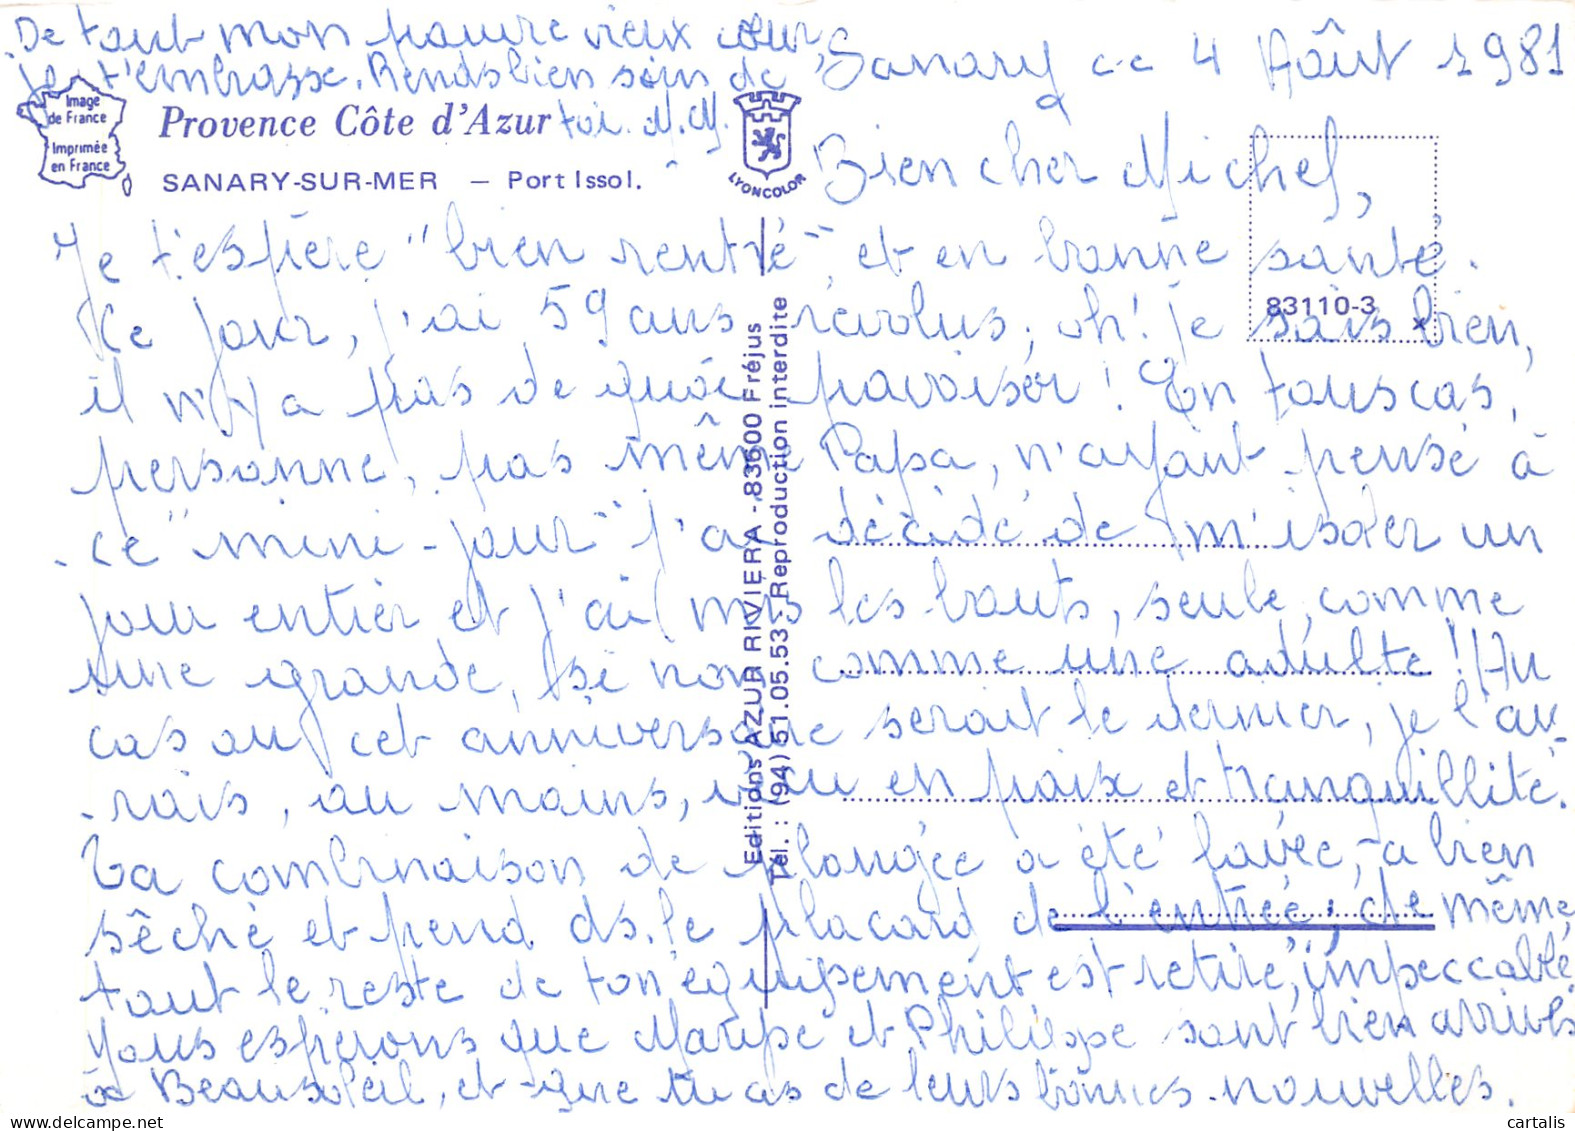 De tout mon pauvre vieux cœur,
je t'embrasse. Rends bien soin de
toi. M.M.
Image
de France
Imprimée
en France
Provence Côte d'Azur
SANARY-SUR-MER – Port Issol.
LYONCOLOR
Sanary ce 4 Août 1981
Bien cher Michel,
83110-3
Je t'espère "bien rentré", et en bonne santé.
Ce jour, j'ai 59 ans révolus, oh! je sais bien,
il n'y a pas de quoi pavoiser! En tous cas,
personne, pas même Papa, n'ayant pensé à
ce "mini-jour" j'ai décidé de m'isoler un
jour entier et j'ai mis les bouts, seule, comme
une grande, si non comme une adulte! Au
cas où cet anniversaire serait le dernier, je l'au-
-rais, au moins, vécu en paix et tranquillité.
La combinaison de plongée a été lavée, a bien
sêché et pend ds. le placard de l'entrée, de même
tout le reste de ton équipement est retiré, impeccable
Nous espérons que et Philippe sont bien arrivés
à Beausoleil, et que tu as de leurs bonnes nouvelles.
Editions AZUR RIVIERA - 83600 Fréjus
Tél. : (94) 51.05.53 - Reproduction interdite
cartalis